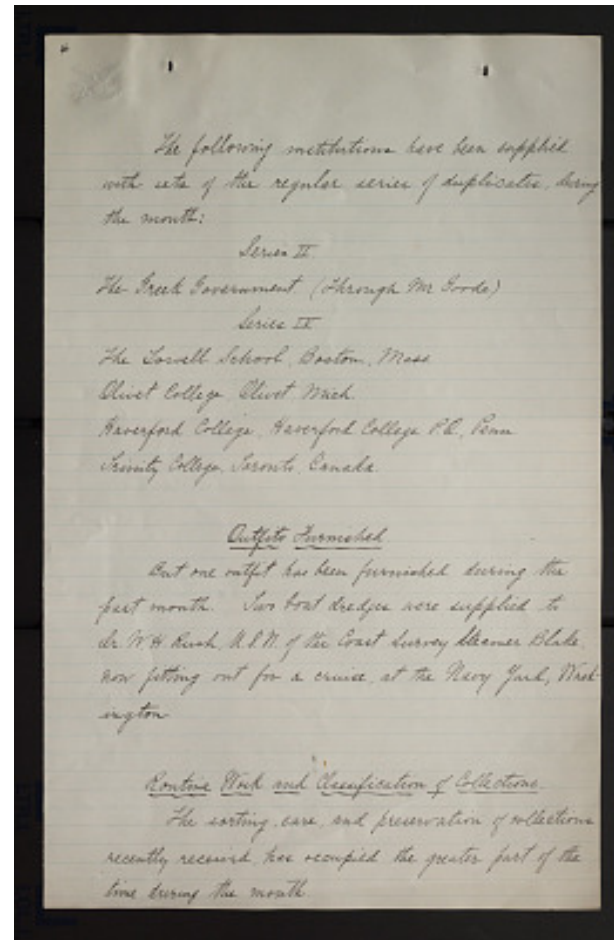 The following institutions have been supplied
with sets of the regular series of duplicates, during
the month:
Series II
The Greek Government (Through Mr Goode)
Series IV
The Lowell School, Boston, Mass
Olivet College, Olivet Mich.
Haverford College, Haverford College P.O., Penn
Trinity College, Toronto, Canada.
Outfits Furnished
But one outfit has been furnished during the
past month. Two boat dredges were supplied to
Dr. W. H. Rush, U.S.N. of the Coast Survey Steamer Blake,
now fitting out for a cruise, at the Navy Yard, Wash-
ington
Routine Work and Classification of Collections.
The sorting, care, and preservation of collections
recently received, has occupied the greater part of the
time during the month